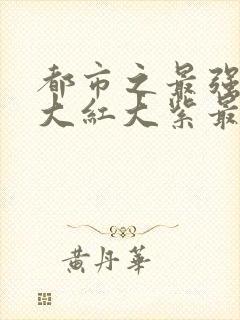 都市之最强
大红大紫最
黄丹华